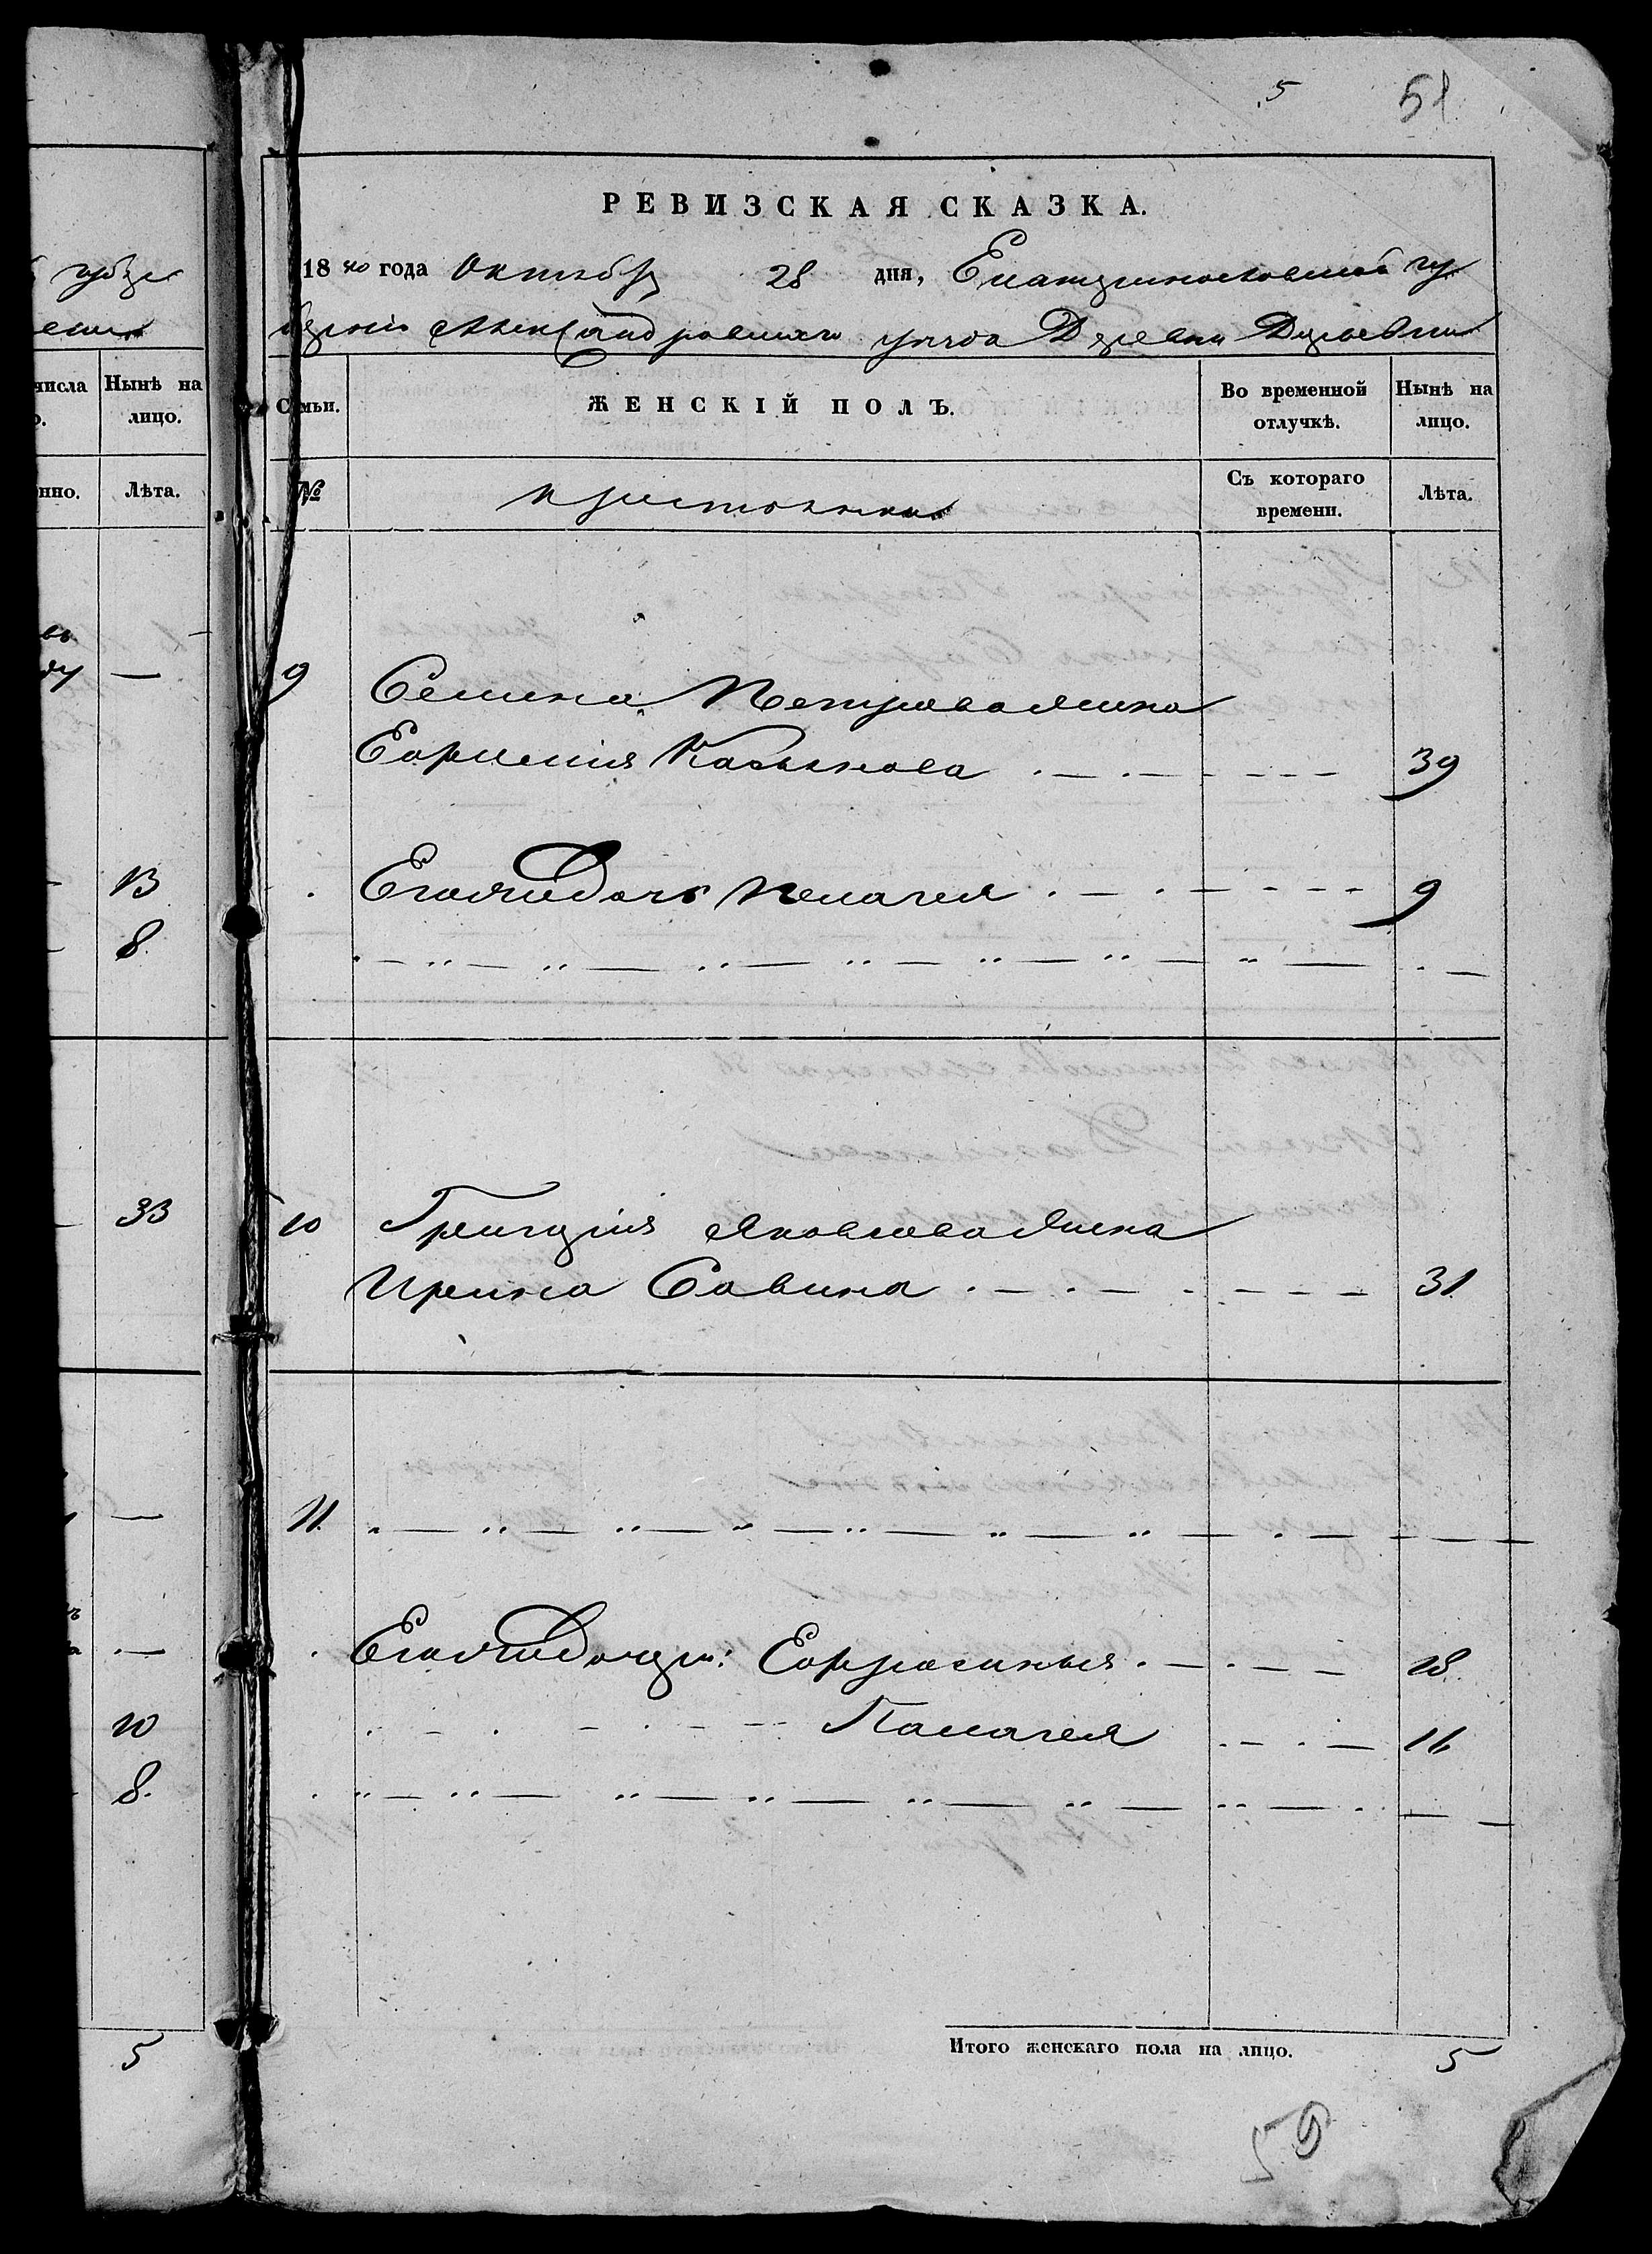 5 51
РЕВИЗСКАЯ СКАЗКА.
1850 года Октября 28 дня, Екатеринославской гу
берніи Александровскаго уезда Деревни
числа Нынѣ на лицо.
Лѣта.
Семьи. ЖЕНСКІЙ ПОЛЪ. Во временной отлучкѣ. Нынѣ на лицо.
№ Съ котораго времени. Лѣта.
9 Семена Петрова жена
Евфимия 39
13 Егожъ дочь Пелагея 9
8.
33 10 Григорія Яковлева жена
Ирина Савина 31
11.
Егожъ дочери: Ефросинья 18
10 Палагея 11
8.
5 Итого женскаго пола на лицо. 5